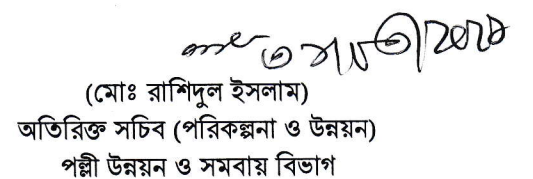 (মোঃ রাশিদুল ইসলাম)
অতিরিক্ত সচিব (পরিকল্পনা ও উন্নয়ন)
পল্লী উন্নয়ন ও সমবায় বিভাগ